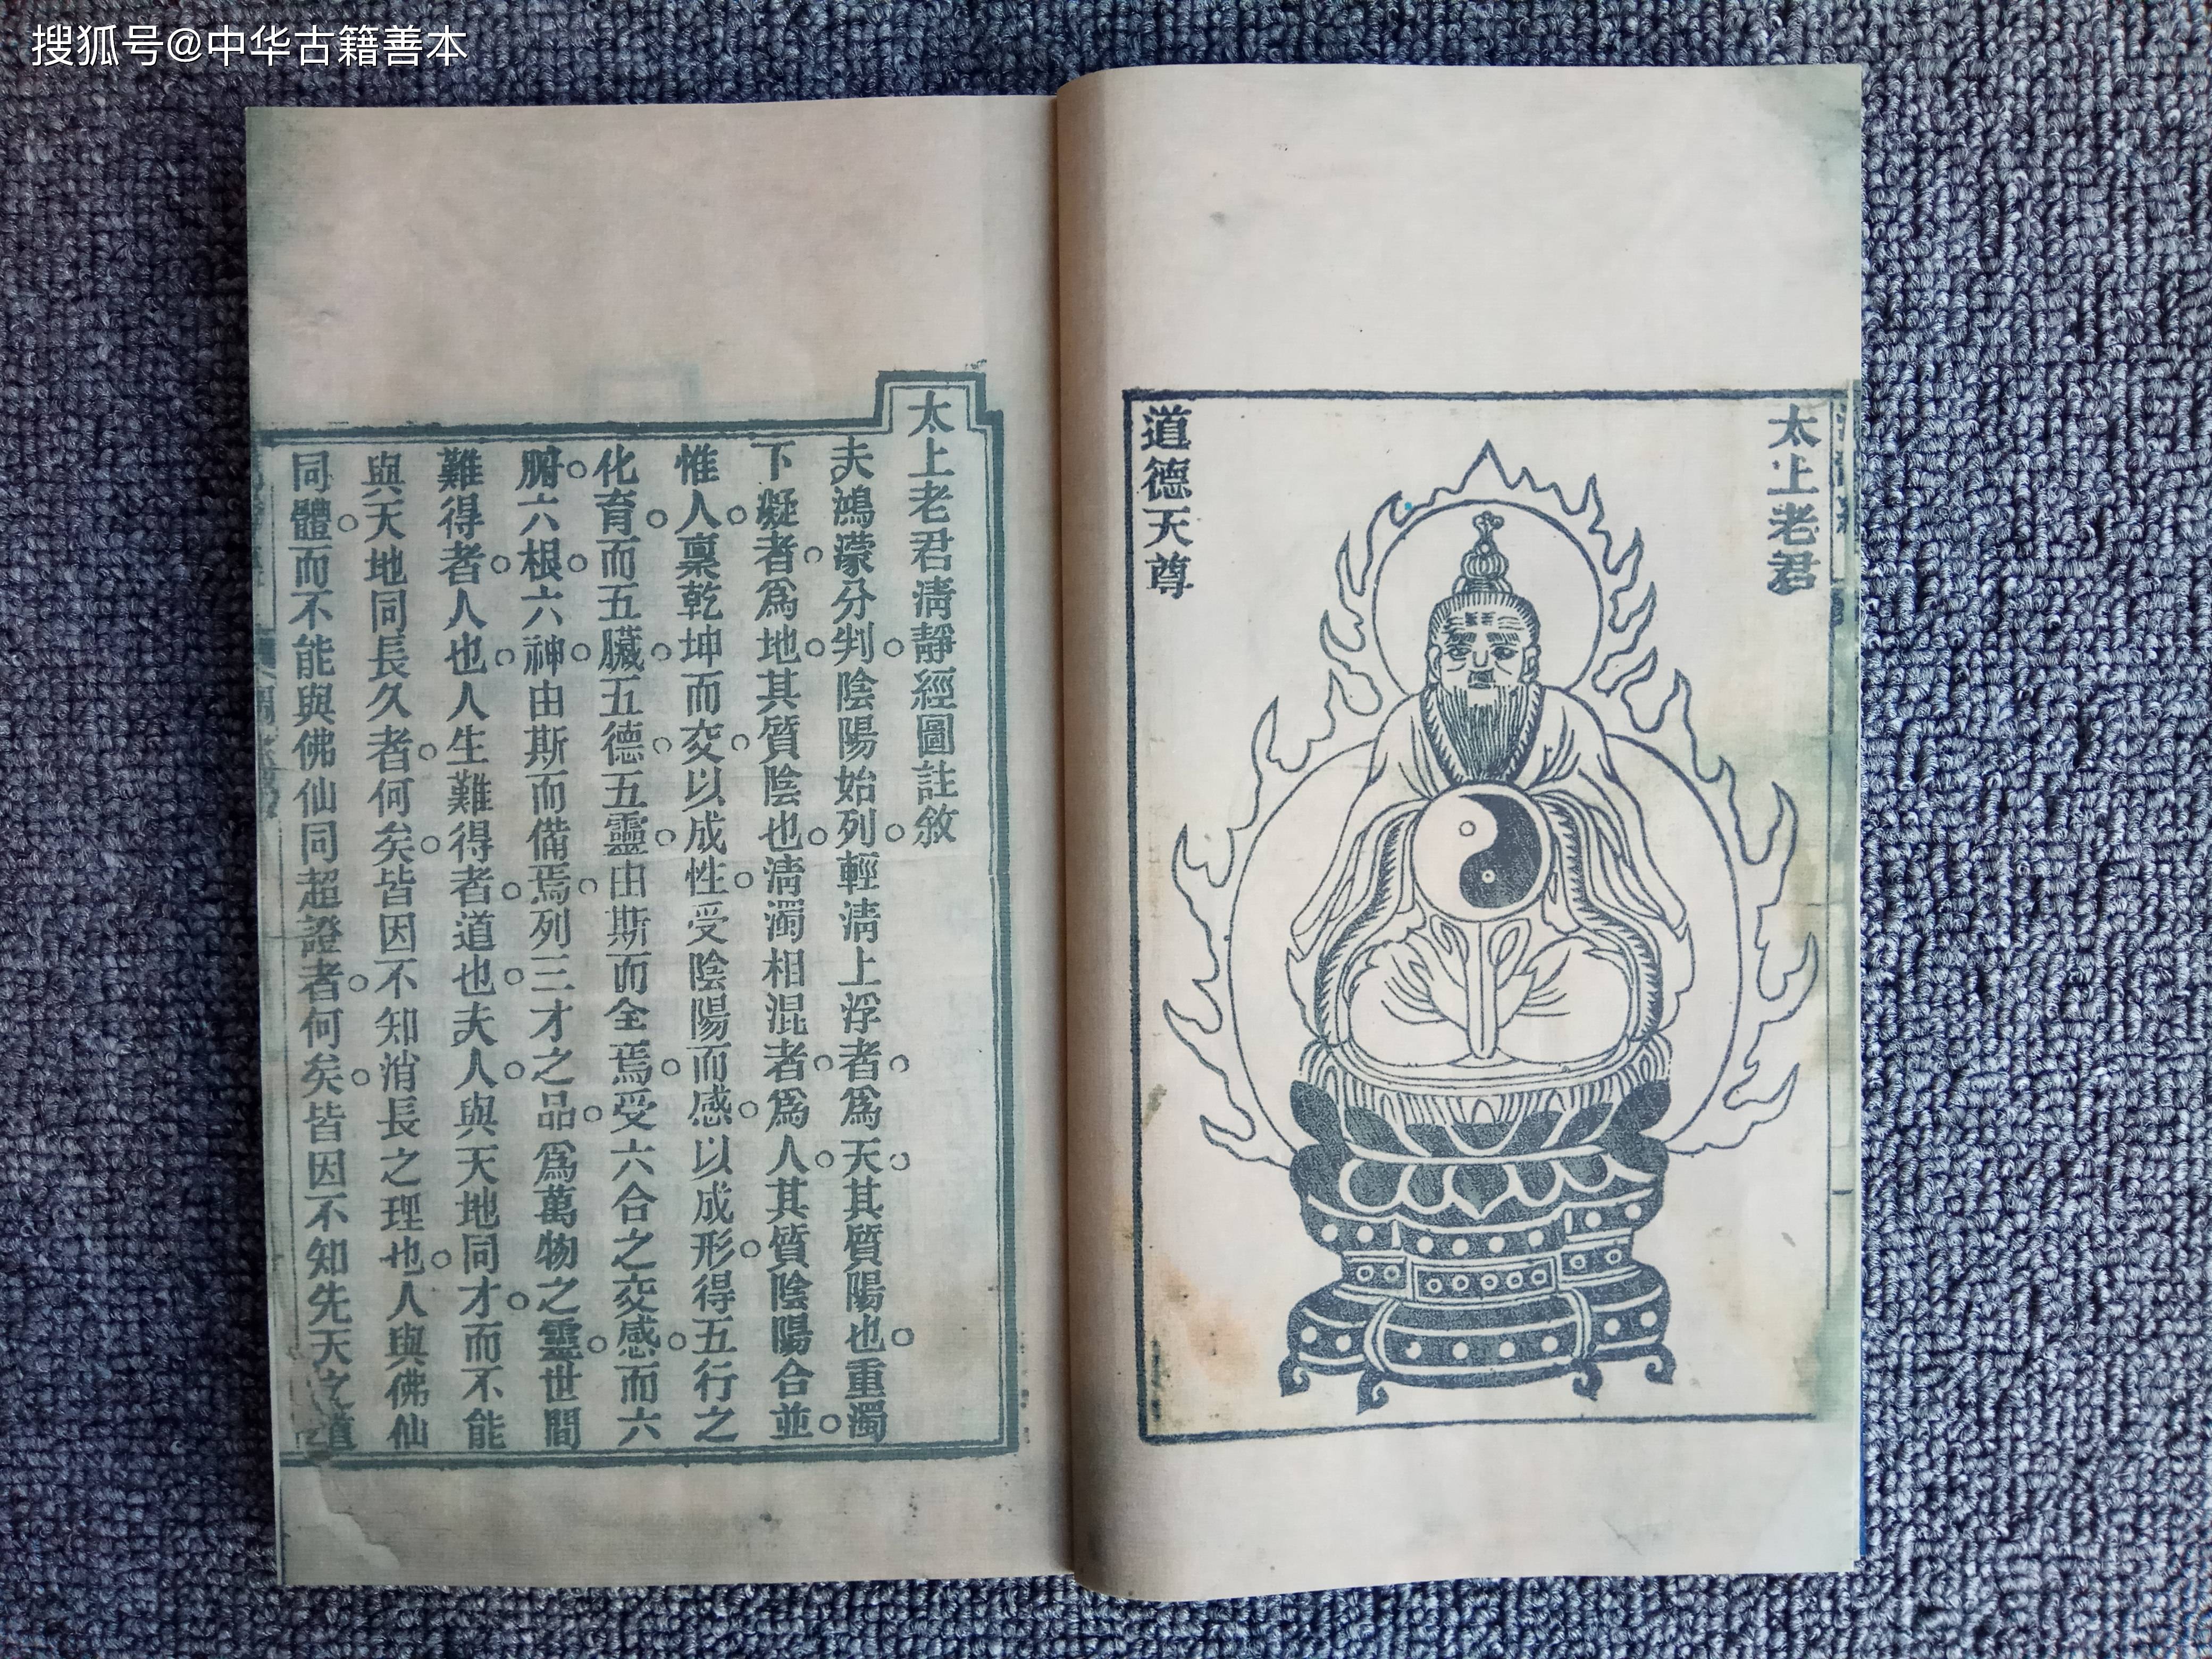 搜狐号@中华古籍善本
太上老君
道德天尊
太上老君清靜經圖註敘
夫鴻濛分判。陰陽始列。輕清上浮者。爲天。其質陽也。重濁
下凝者。爲地。其質陰也。清濁相混者。爲人。其質陰陽合並。
惟人。稟乾坤而交。以成性。受陰陽而感。以成形。得五行之
化育。而五臟。五德。五靈。由斯而全焉。受六合之交感。而六
腑。六根。六神。由斯而備焉。列三才之品。爲萬物之靈。世間
難得者。人也。人生難得者。道也。夫人。與天地同才。而不能
與天地同長久者。何矣。皆因不知消長之理也。人與佛仙
同體。而不能與佛仙同超證者。何矣。皆因不知先天之道